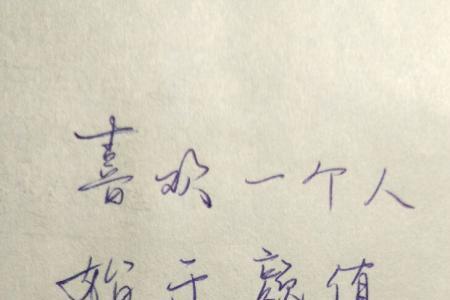 喜欢一个人
始于颜值